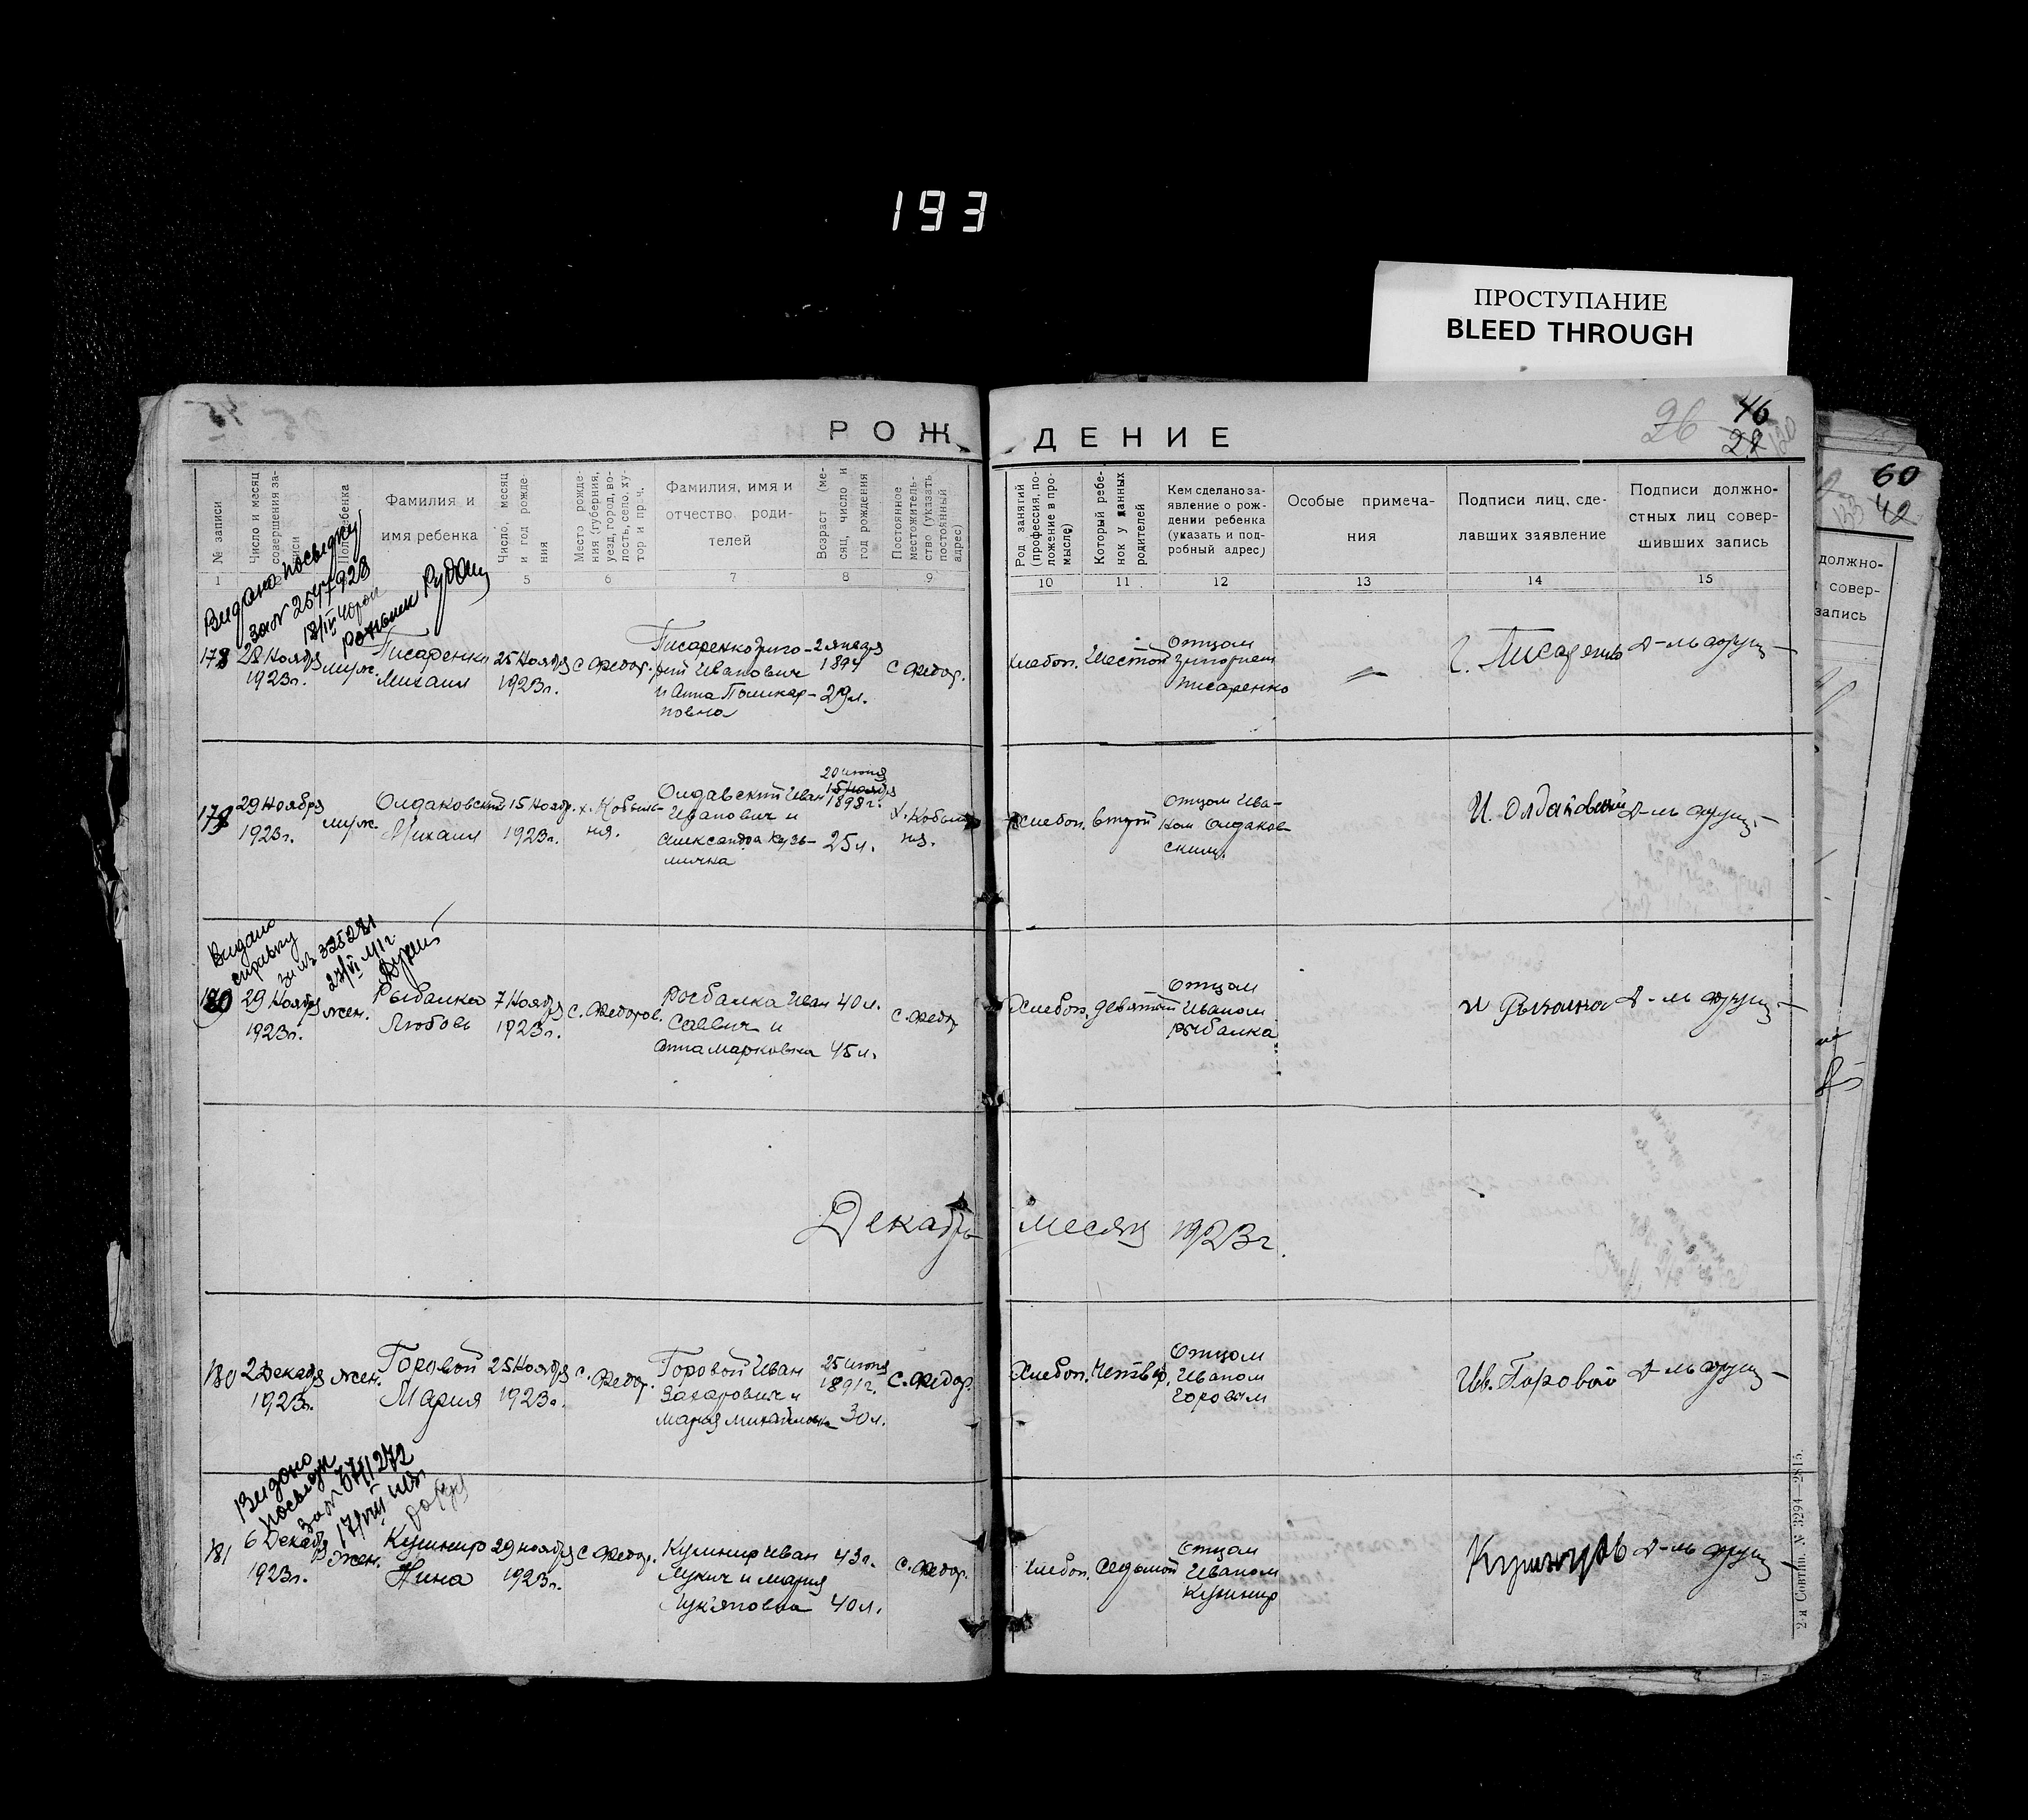 193
ПРОСТУПАНИЕ
BLEED THROUGH
РОЖДЕНИЕ
26
46
28
60
42
№ записи
Число и месяц совершения записи
Пол ребенка
Фамилия и
имя ребенка
Число, месяц
и год рожде-
ния
Место рожде-
ния (губерния,
уезд, город, во-
лость, село, ху-
тор и пр.ч.
Фамилия, имя и
отчество роди-
телей
Возраст (ме-
сяц, число и
год рождения
Постоянное
местожитель-
ство (указать
постоянный
адрес)
Род занятий
(профессия, по-
ложение в про-
мысле)
Который ребе-
нок у данных
родителей
Кем сделано за-
явление о рож-
дении ребенка
(указать и под-
робный адрес)
Особые примеча-
ния
Подписи лиц, сде-
лавших заявление
Подписи должно-
стных лиц совер-
шивших запись
должно-
совер-
запись
1 5 6 7 8 9 10 11 12 13 14 15
Видано посвідку
за № 2547928
178
28 Ноября
1923г.
муж.
Писаренко
Михаил
25 Ноября
1923г.
с Федор.
Писаренко Григо-
рий Иванович
и Анна Поликар-
повна
2 января
1894
29л.
с Федор.
Хлебоп.
Шестой
Отцом
Григорием
Писаренко
Г. Писаренко
179
29 Ноября
1923г.
муж.
Олдаковский
Михаил
15 Ноябр.
1923г.
х. Кобыль-
ня.
Олдавский Иван
Иванович и
Александра Кузь-
минична
20 июня
15 Ноября
1898г.
25л.
х. Кобыль
ня.
Хлебоп.
Второй
Отцом Ива-
ном Олдаков-
ским.
И. Олдаковский
Видано
справку
за № 325281
180
29 Ноябр
1923г.
жен.
Рыбалка
Любовь
7 Ноябр
1923г.
с. Федоров.
Рыбалка Иван
Саввич и
Анна Марковна
40л.
45л.
с. Федор
Хлебоп.
девятый
Отцом
Иваном
Рыбалка
И Рыбалка
Декабрь месяц 1923г.
180
2 Декабр
1923г.
жен.
Горовой
Мария
25 Ноября
1923г.
с. Федор.
Горовой Иван
Захарович и
Мария Михайловна
25 июня
1891г.
30л.
с. Федор.
Хлебоп.
Четвер.
Отцом
Иваном
Горовым
Ив. Горовой
Видано
посвідк
за № 3711272
181
6 Декабр
1923г.
жен.
Кушнир
Нина
29 ноября
1923г.
с Федор.
Кушнир Иван
Лукич и Мария
Лук'яновна
43г.
40л.
с. Федор.
Хлебоп.
Седьмой
Отцом
Иваном
Кушнир
2-я Совтип. № 3294—2815.